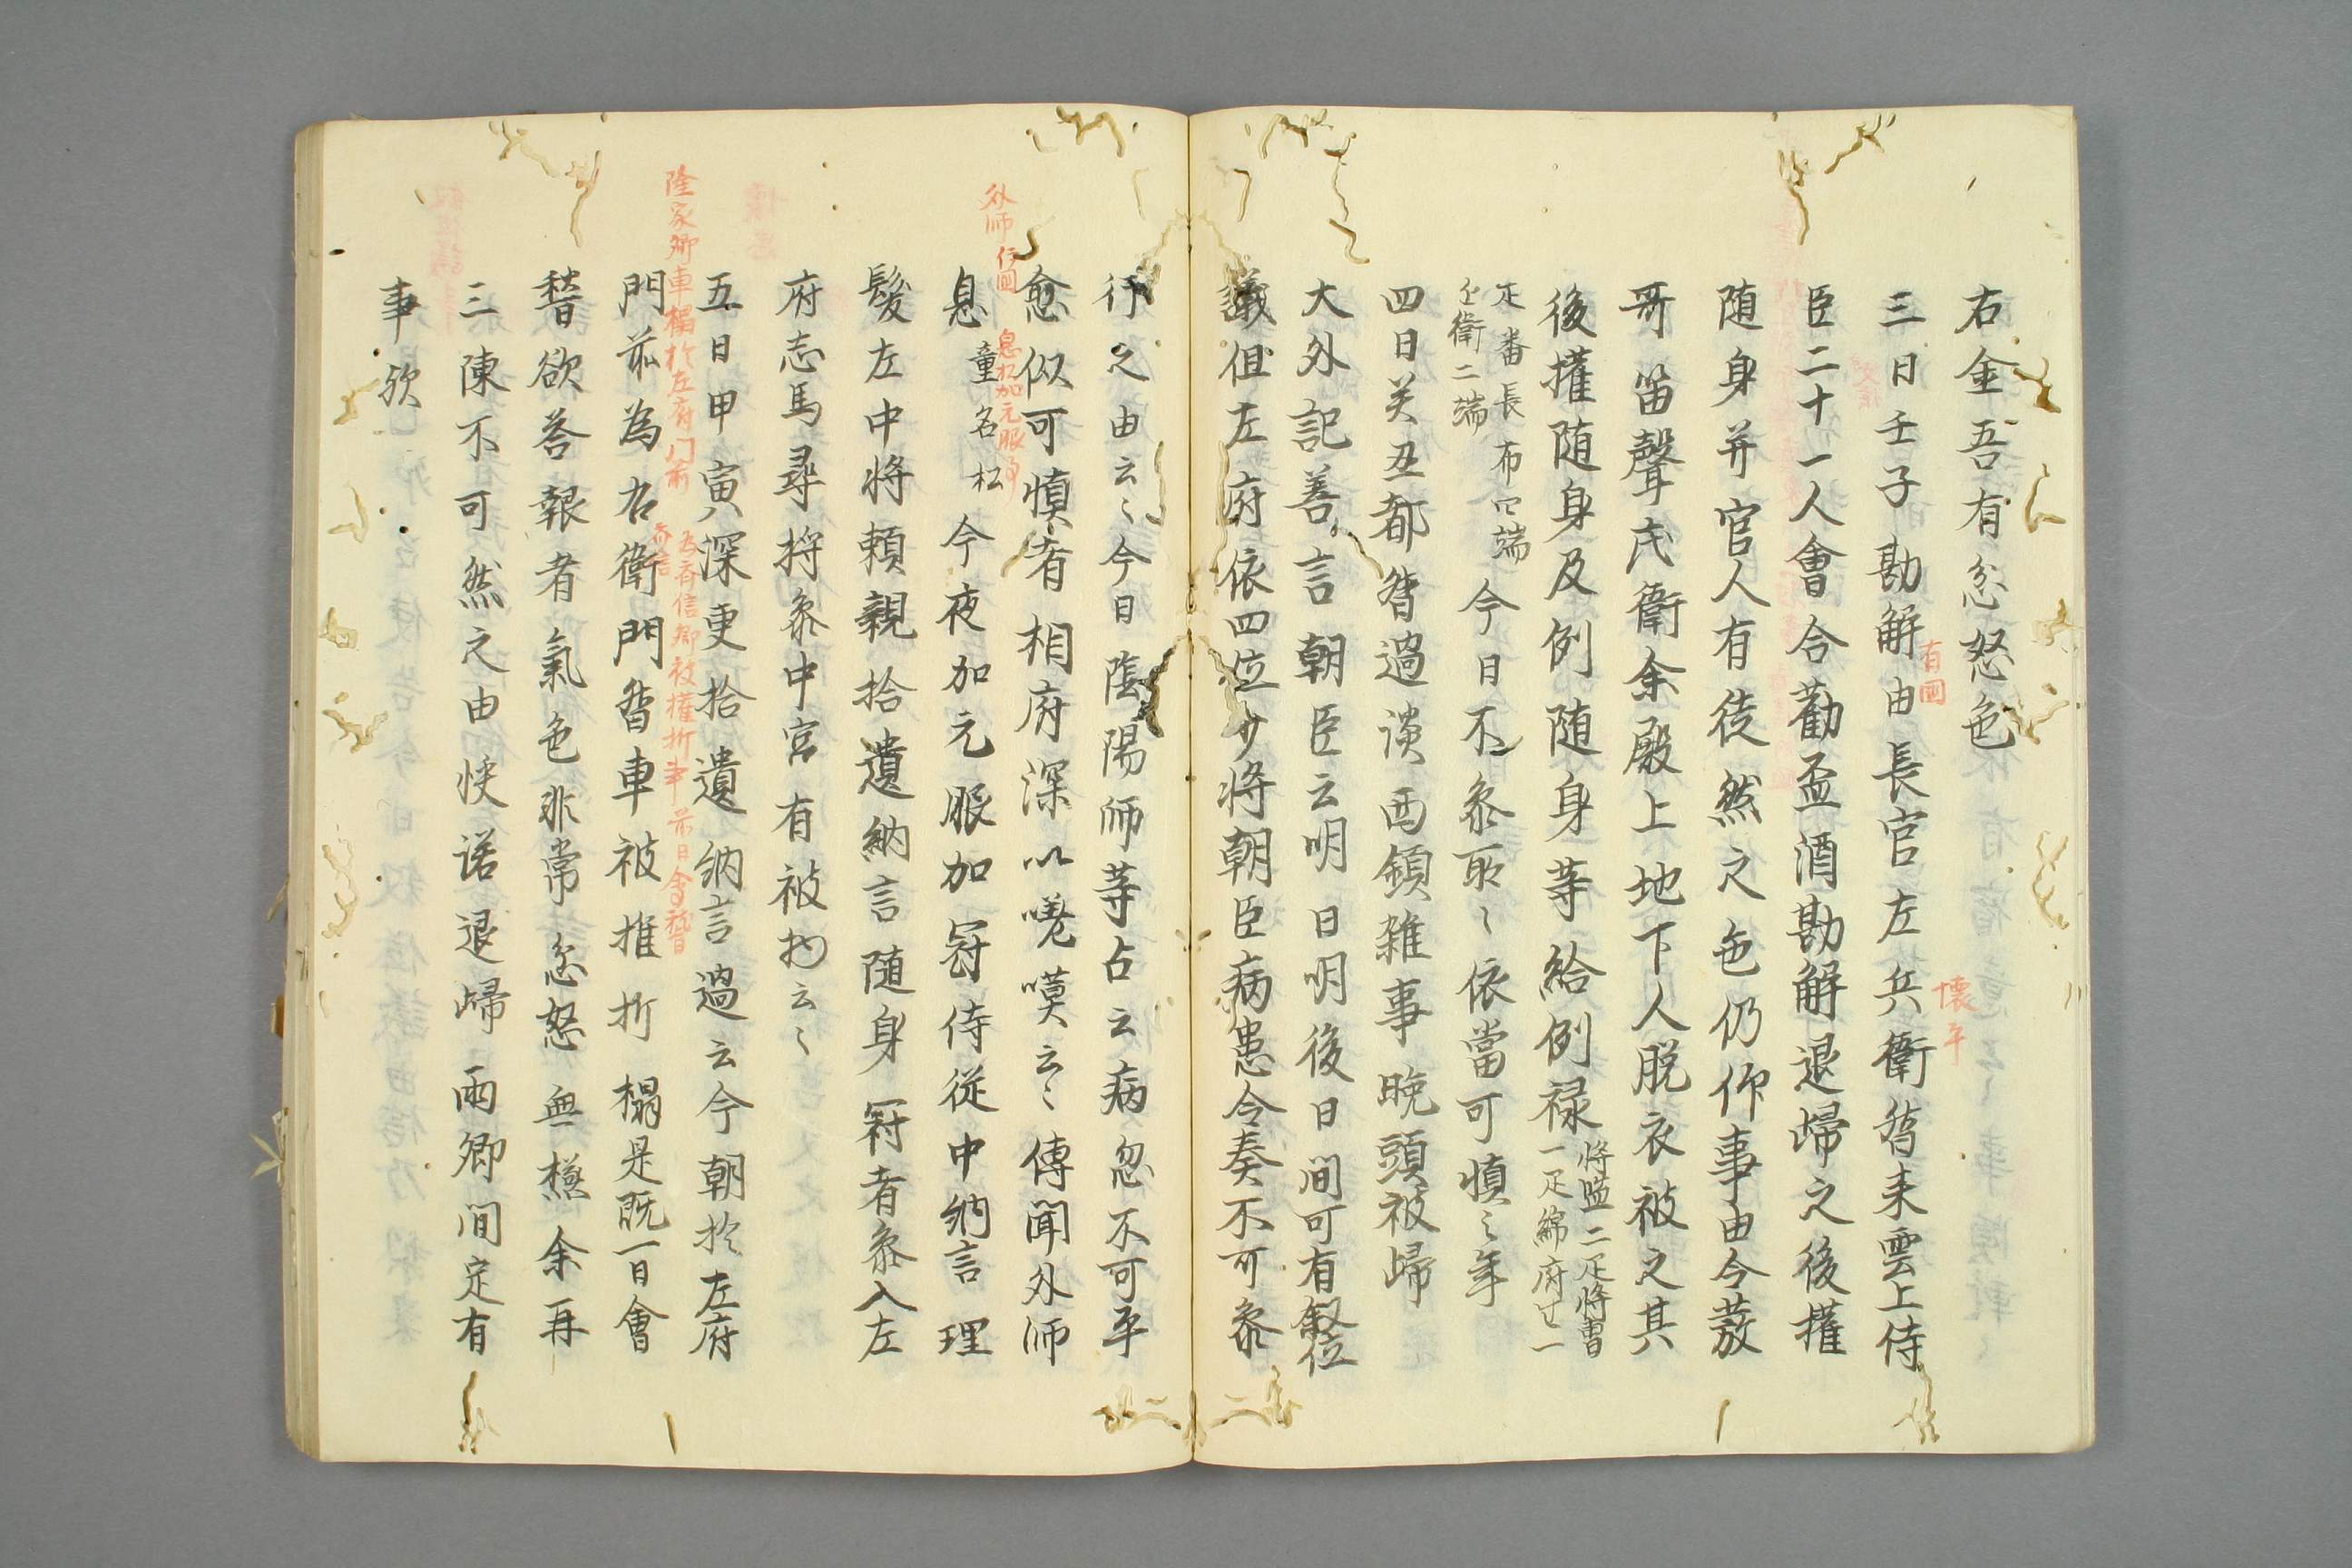 右金吾有忿怒色
三日壬子勘解由長官左兵衛督来雲上侍
有国
懐平
臣二十一人會合勸盃酒勘解退歸之後攉
随身并官人有徒然之色仍仰事由令發
哥笛聲氏衛余殿上地下人脱衣被之其
後攉随身及例随身等給例禄
将監二疋将曹
一疋綿府生一
疋番長布四端
今日不参所々依當可慎之年
四日关丑都督過談西鎮雜事晩頭被歸
大外記善言朝臣云明日明後日間可有叙位
議但左府依四位少将朝臣病患令奏不可参
行之由云々今日陰陽師等占云病忽不可平
愈似可慎者相府深以嘆云々傳聞外師
外師伊周
息松加元服事
息
童名松
今夜加元服加冠侍従中納言理
髪左中将頼親拾遺納言随身冠者参入左
府志馬尋捋参中宮有被物云々
五日甲寅深更拾遺納言過云今朝於左府
隆家卿車榻於左府门前
為斉信卿被攉折事前日會稽
門前為右衛門督車被推折榻是既一日會
斉信
稽欲答報者氣色非常忿怒無極余再
三陳不可然之由快諾退歸兩卿間定有
事歟